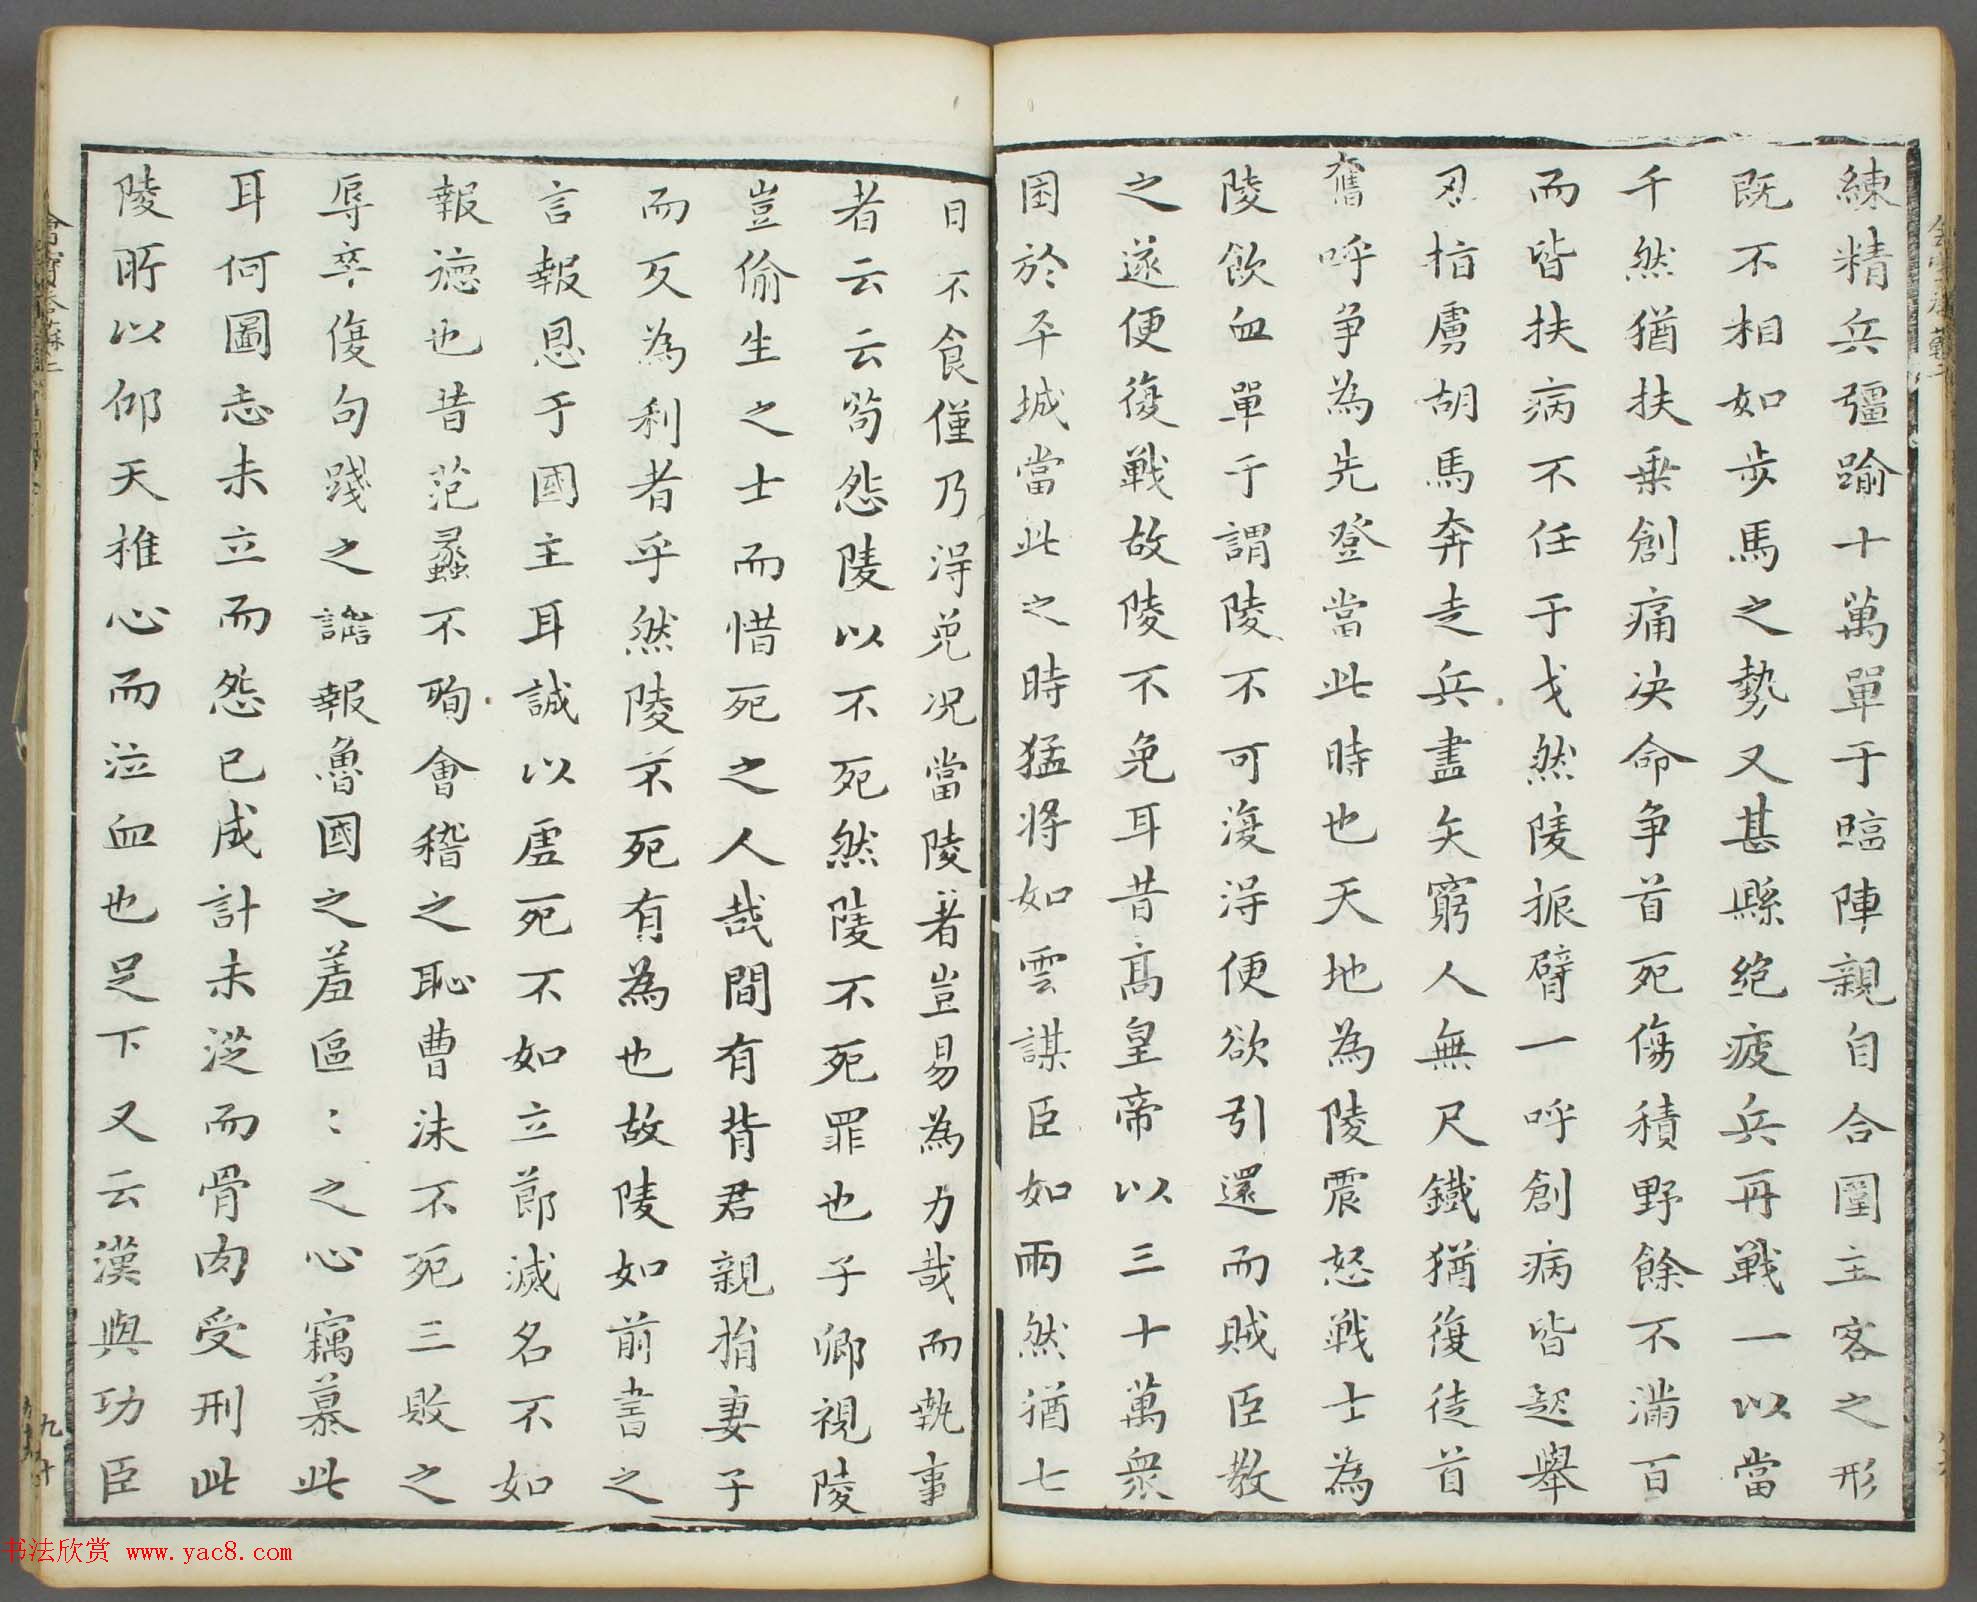 練精兵彊踰十萬單于臨陣親自合圍主客之形
既不相如步馬之勢又甚縣絶疲兵再戰一以當
千然猶扶乗創痛决命争首死傷積野餘不滿百
而皆扶病不任于戈然陵振臂一呼創病皆起舉
刃指虜胡馬奔走兵盡矢窮人無尺鐵猶復徒首
奮呼争為先登當此時也天地為陵震怒戰士為
陵飲血單于謂陵不可復得便欲引還而賊臣教
之遂便復戰故陵不免耳昔髙皇帝以三十萬衆
困於平城當此之時猛將如雲謀臣如雨然猶七
日不食僅乃得免况當陵者豈易為力哉而執事
者云云苟怨陵以不死然陵不死罪也子卿視陵
豈偷生之士而惜死之人哉間有背君親捐妻子
而反為利者乎然陵不死有為也故陵如前書之
言報恩于國主耳誠以虚死不如立節滅名不如
報德也昔范蠡不殉會稽之恥曹沫不死三敗之
辱卒復句踐之讎報魯國之羞區〻之心竊慕此
耳何圖志未立而怨已成計未從而骨肉受刑此
陵所以仰天椎心而泣血也足下又云漢與功臣
书法欣赏 www.yac8.com